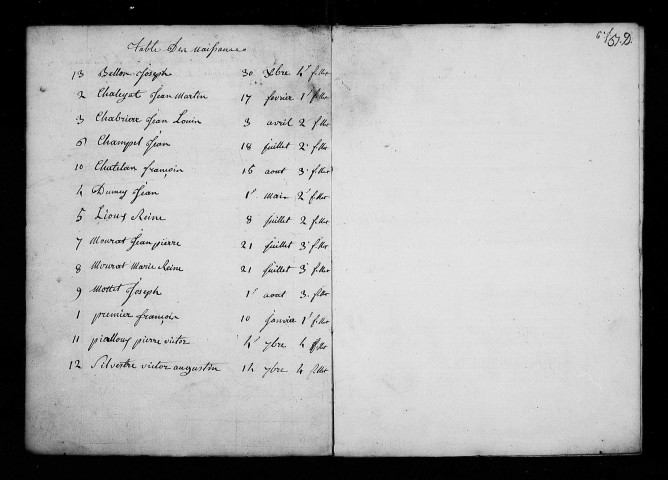 Table Des naissances
13 Bellon Joseph 30 xbre 4e fillet
2 Chaleyat Jean Martin 17 fevrier 1r fillet
3 Chabriere Jean Louis 3 avril 2 fillet
6 Champet Jean 18 juillet 2e fillet
10 Chatelan françois 15 aout 3e fillet
4 Dumey Jean 1r mai 2e fillet
5 Lioux Reine 8 juillet 2 fillet
7 Mourat Jean pierre 21 juillet 3e fillet
8 Mourat Marie Reine 21 juillet 3e fillet
9 Mottet Joseph 1r aout 3e fillet
1 premier françois 10 janvier 1r fillet
11 pierre victor 4r 7bre 4 fillet
12 Silvestre victor augustin 14 7bre 4 fillet